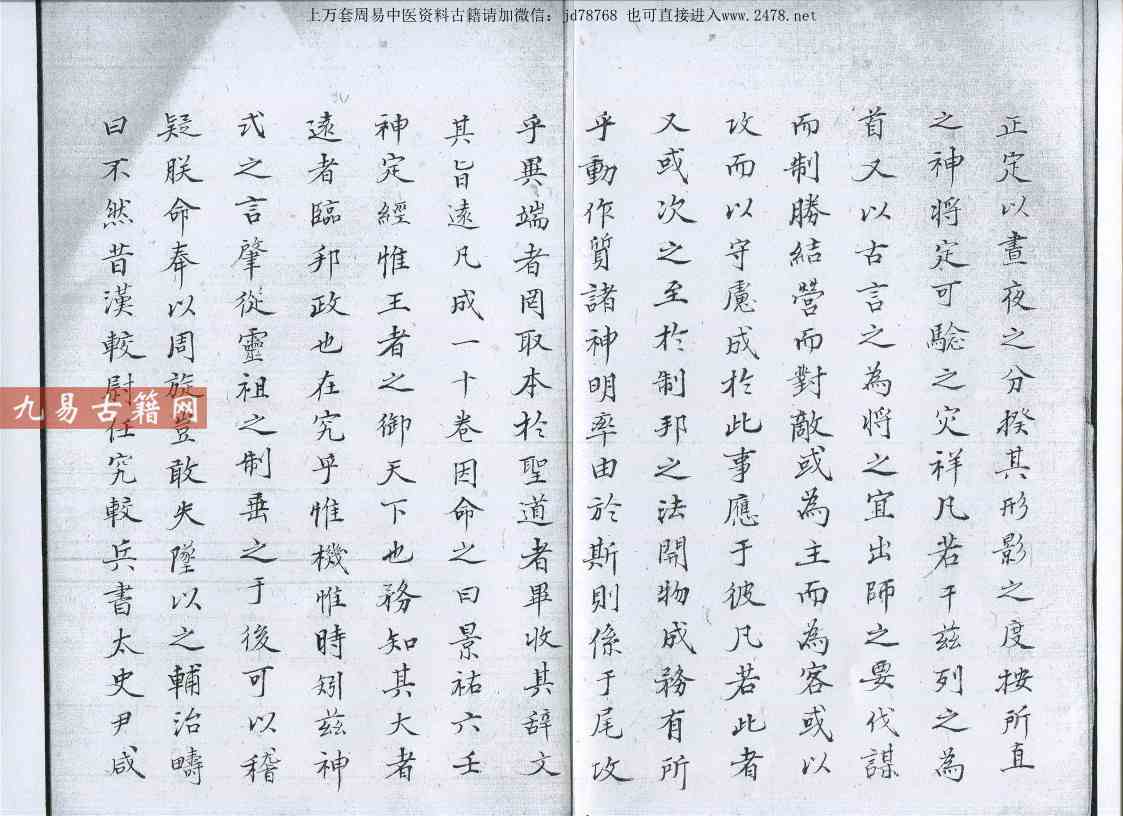 上万套周易中医资料古籍请加微信：jd78768 也可直接进入www.2478.net
正定以晝夜之分揆其形影之度按所直
之神將定可驗之灾祥凡若干茲列之為
首又以古言之為將之宜出師之要伐謀
而制勝結營而對敵或為主而為客或以
攻而以守慮成於此事應于彼凡若此者
又或次之至於制邦之法開物成務有所
乎動作質諸神明率由於斯則係于尾攻
乎異端者罔取本於聖道者畢收其辞文
其旨遠凡成一十卷因命之曰景祐六壬
神定經惟王者之御天下也務知其大者
遠者臨邦政也在究乎惟機惟時矧茲神
式之言肇從靈祖之制垂之于後可以稽
疑朕命奉以周旋豈敢失墜以之輔治疇
曰不然昔漢較尉任究較兵書太史尹咸
九易古籍网